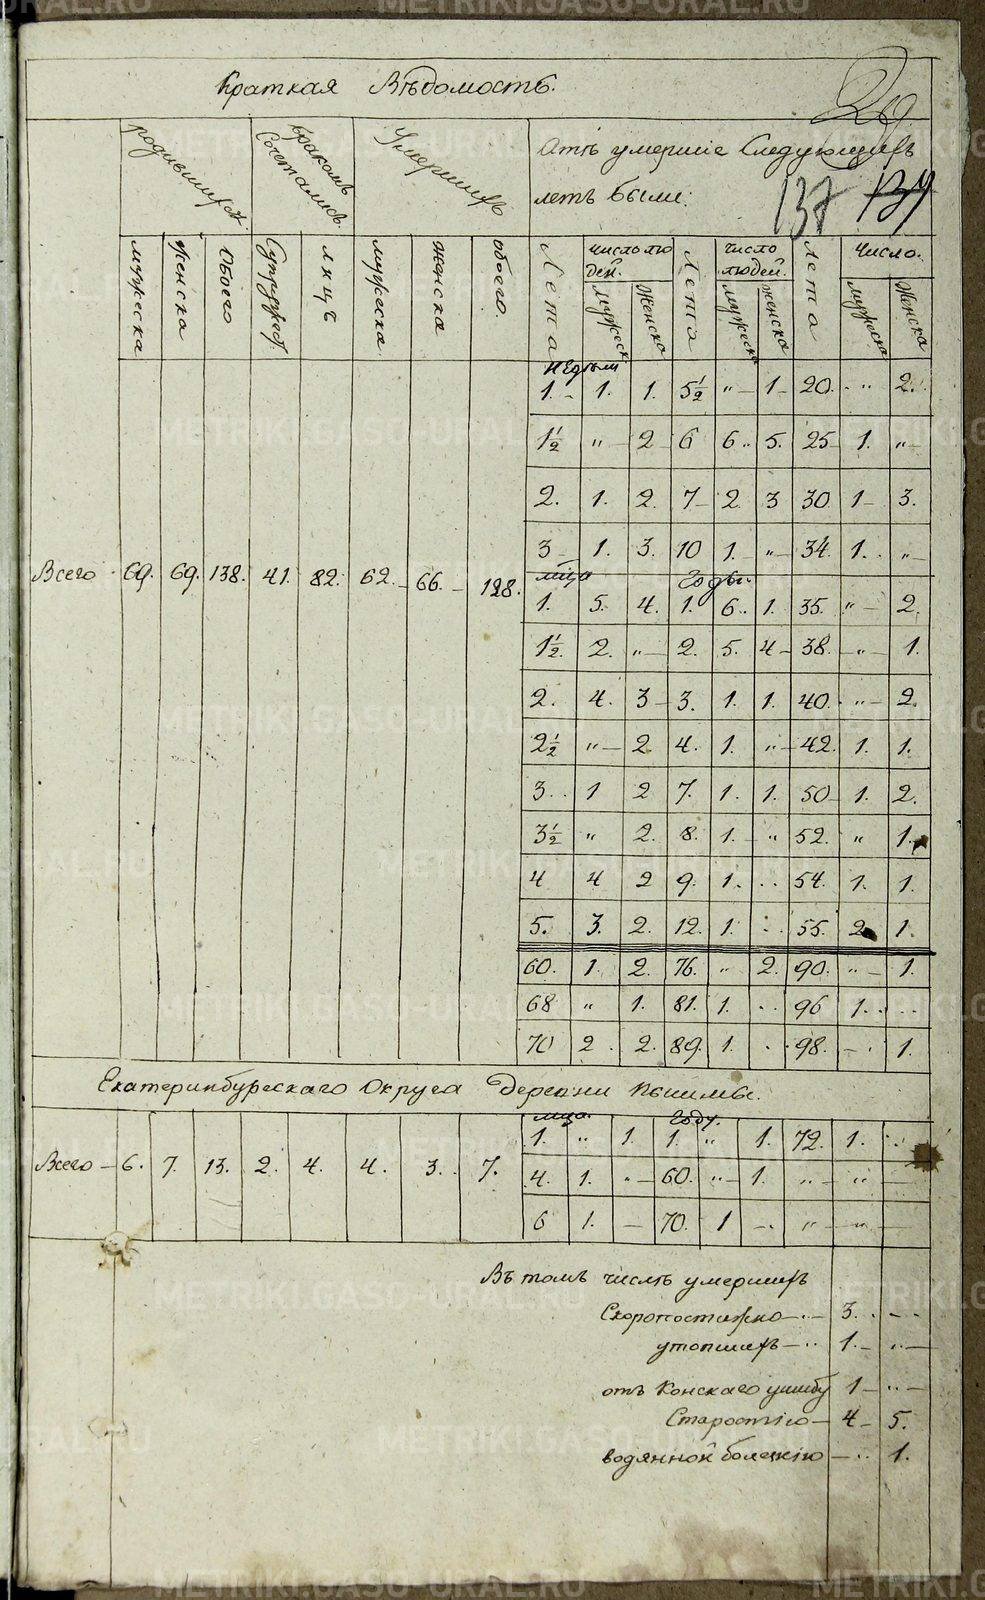 Краткая Вѣдомость.
29
родившихся.
бракомъ Сочеталися.
Умершихъ
Отъ умершiе Следующихъ
летъ были:
137 137
мужеска
женска
обоего
Супружест.
лицъ
мужеска
женска
обоего.
Лета
число лю
дей.
мужеск
Женска
Лета
число
людей.
мужеска
женска
Лета
Число.
мужеска
Женска
недели
1. - 1. 1. 5½ " - 1 - 20. - " 2.
1½ " - 2 6 6.. 5. 25 1. " -
2. 1. 2. 7 - 2 3 30 1 - 3.
3 - 1. 3. 10 1. - " - 34. 1. . " -
мѣсяца Годы.
1. 5. 4. 1. 6. . 1. 35. " - 2.
1½. 2. " - 2. 5. 4 - 38. - " - 1.
2. 4. 3 - 3. 1. 1. 40. - " - 2.
2½ " - 2 4. 1. " - 42. 1. 1.
3. . 1 2 7. 1. 1. 50 - 1. 2.
3½ " 2. 8. 1. - " 52. " 1.
4 4 2 9. 1. . . 54. 1. 1.
5. 3. 2. 12. 1. . . 55. 2 1.
Всего 69. 69. 138. 41. 82. 62. - 66. - 128.
60. 1. 2. 76. " 2. 90. " - 1.
68 " 1. 81. 1. . . 96 1. . . .
70 2 . 2. 89. 1. . . 98. - . 1.
Екатеринбургскаго Округа Деревни Пышмы.
мѣсяца. Году.
1. " 1. 1. " 1. 72. 1. . .
Всего - 6. 7. 13. 2. 4. 4. 3. . 7. 4. 1. " - 60. " - 1. " - " -
6 1. - 70. 1 - . " - " -
Въ томъ числѣ умершихъ
Скоропостижно - . . - 3. . . - -
утопшихъ - . . 1. - . . -
отъ Конскаго ушибу 1 - . . -
Старостiю - 4 - 5.
водянной болезнiю - . . 1.
METRIKI.GASU-URAL.RU